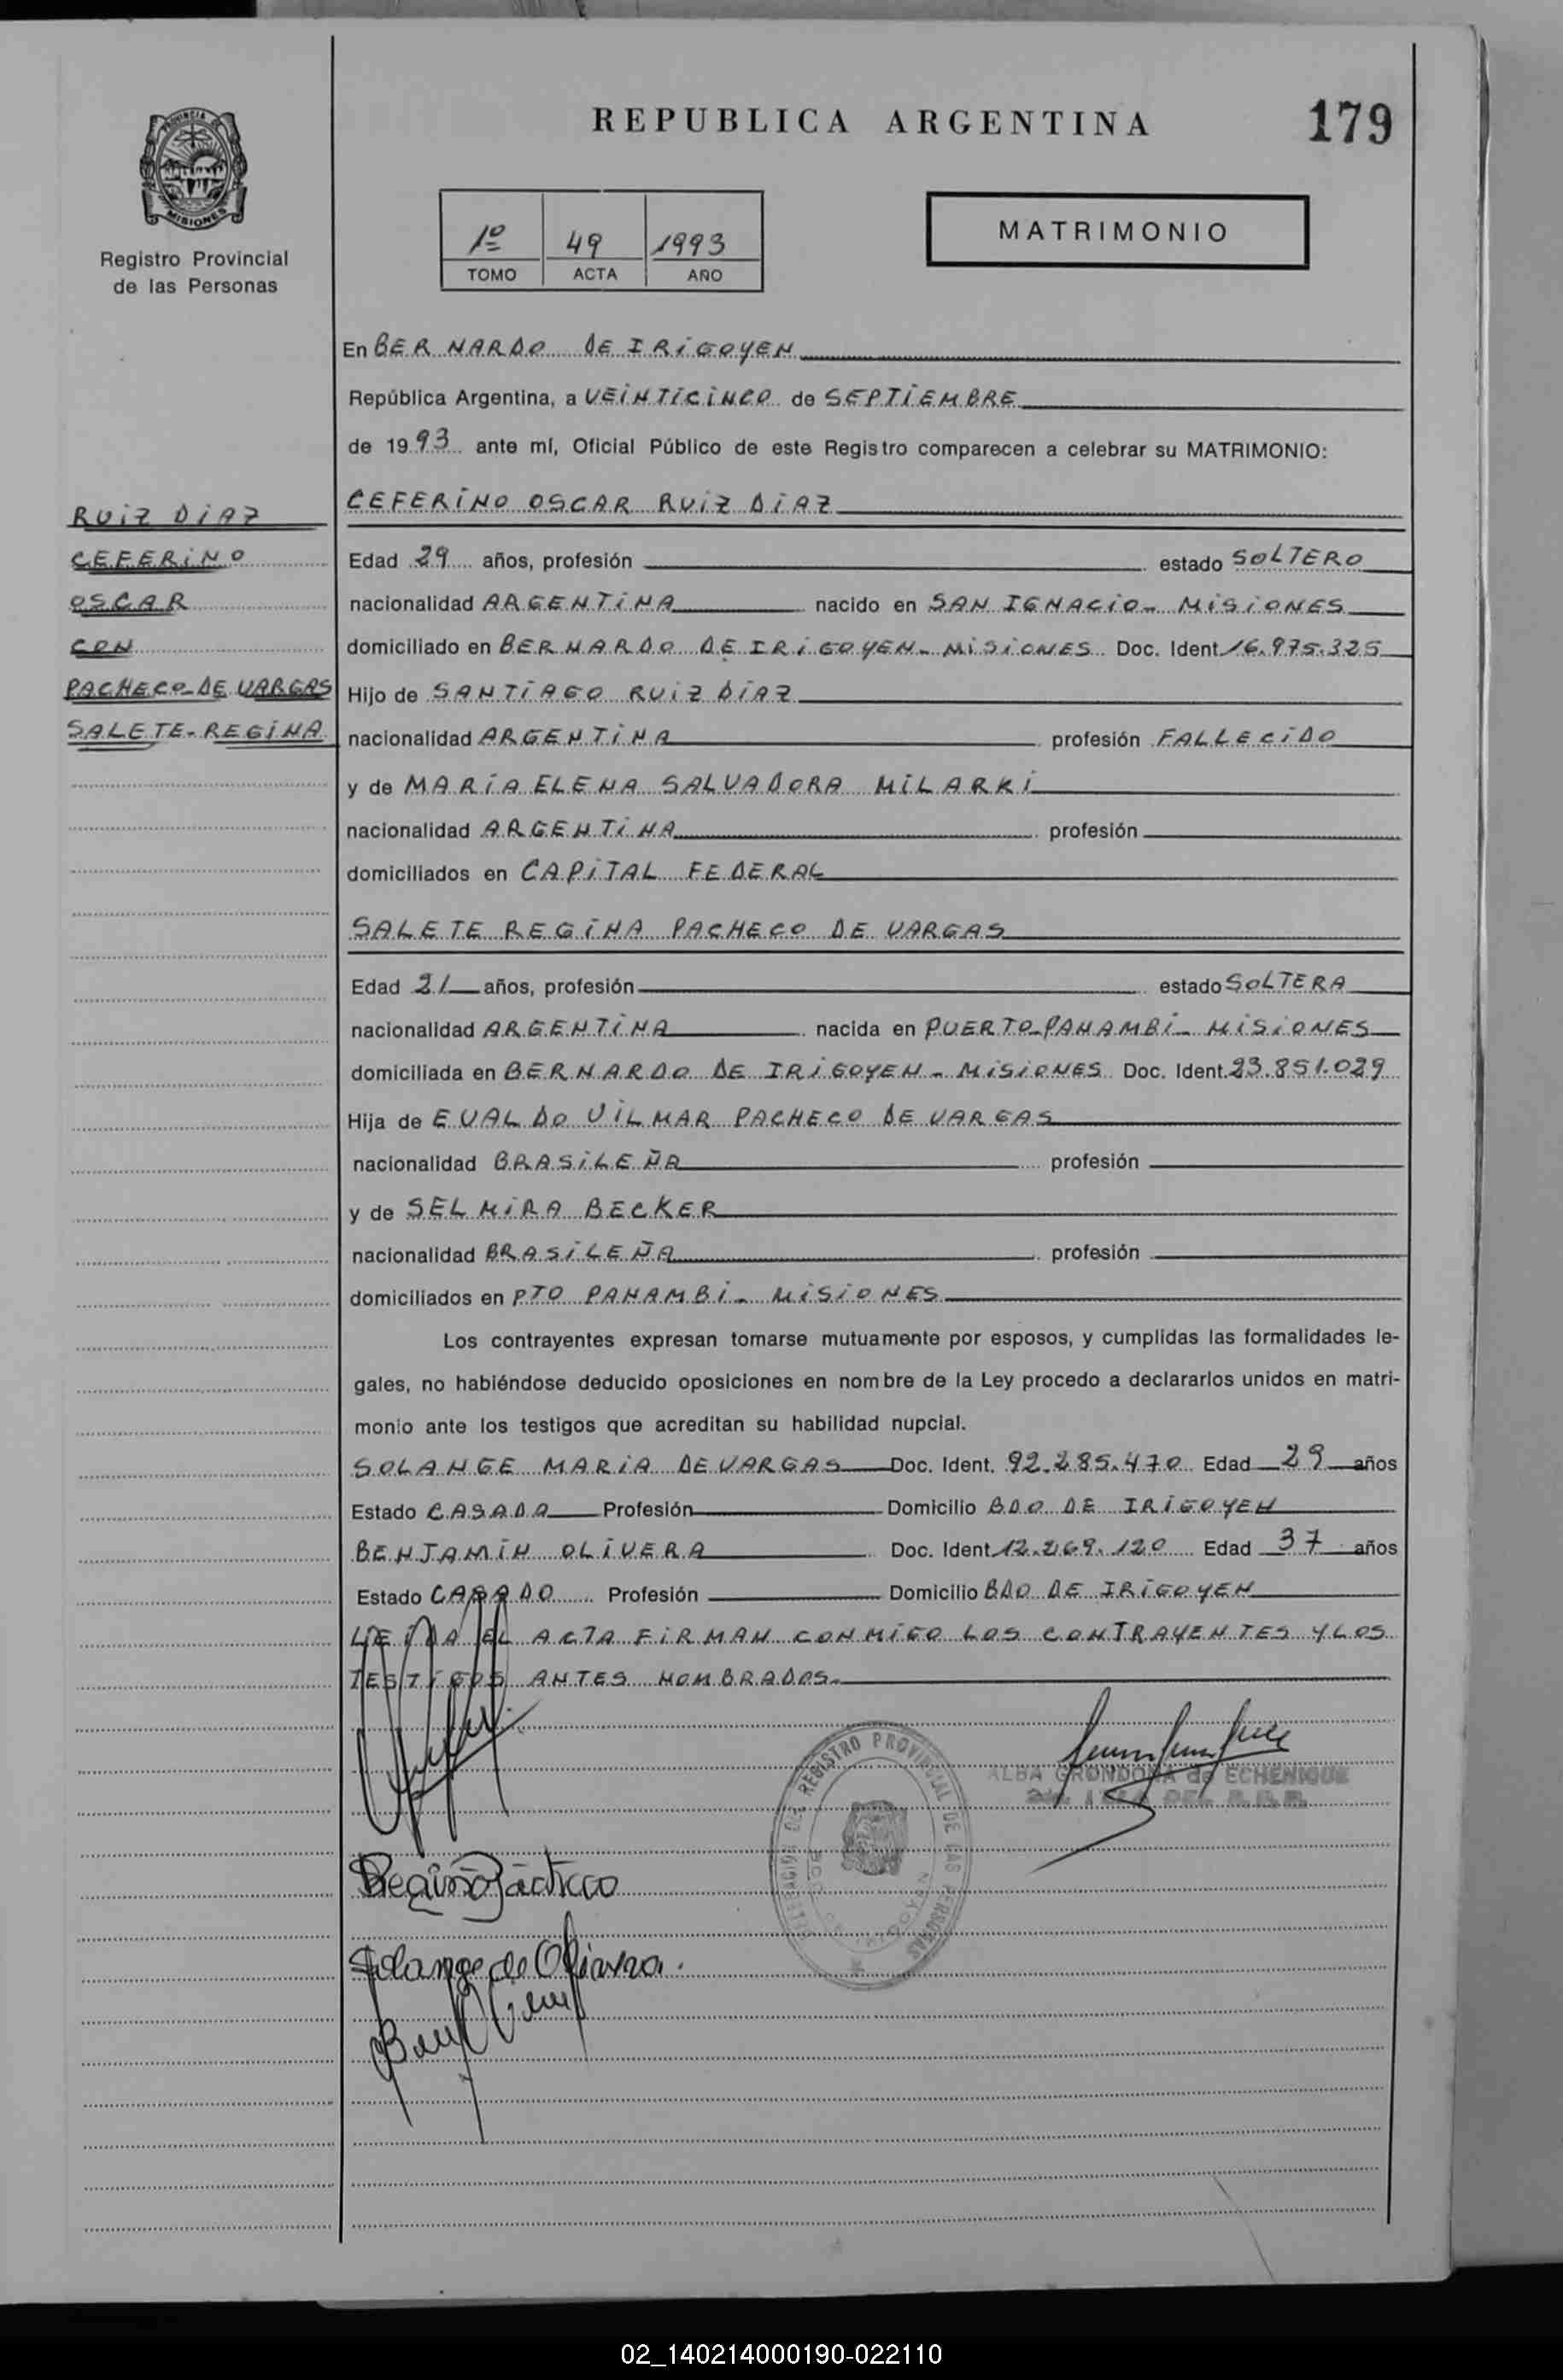 REPUBLICA ARGENTINA
179
PROVINCIA DE
MISIONES
Registro Provincial
de las Personas
1º 49 1993
TOMO ACTA AÑO
MATRIMONIO
En BERNARDO DE IRIGOYEN
República Argentina, a VEINTICINCO de SEPTIEMBRE
de 1993 ante mí, Oficial Público de este Registro comparecen a celebrar su MATRIMONIO:
RUIZ DIAZ
CEFERINO
OSCAR
CON
PACHECO-DE VARGAS
SALETE-REGINA
CEFERINO OSCAR RUIZ DIAZ
Edad 29 años, profesión estado SOLTERO
nacionalidad ARGENTINA nacido en SAN IGNACIO- MISIONES
domiciliado en BERNARDO DE IRIGOYEN- MISIONES Doc. Ident. 16.975.325
Hijo de SANTIAGO RUIZ DIAZ
nacionalidad ARGENTINA profesión FALLECIDO
y de MARIA ELENA SALVADORA MILARKI
nacionalidad ARGENTINA profesión
domiciliados en CAPITAL FEDERAL
SALETE REGINA PACHECO DE VARGAS
Edad 21 años, profesión estado SOLTERA
nacionalidad ARGENTINA nacida en PUERTO-PANAMBI- MISIONES
domiciliada en BERNARDO DE IRIGOYEN- MISIONES Doc. Ident. 23.851.029
Hija de EVALDO VILMAR PACHECO DE VARGAS
nacionalidad BRASILEÑA profesión
y de SELMIRA BECKER
nacionalidad BRASILEÑA profesión
domiciliados en PTO PANAMBI- MISIONES
Los contrayentes expresan tomarse mutuamente por esposos, y cumplidas las formalidades le-
gales, no habiéndose deducido oposiciones en nombre de la Ley procedo a declararlos unidos en matri-
monio ante los testigos que acreditan su habilidad nupcial.
SOLANGE MARIA DE VARGAS Doc. Ident. 92.285.470 Edad 29 años
Estado CASADA Profesión Domicilio BDO DE IRIGOYEN
BENJAMIN OLIVERA Doc. Ident. 12.269.120 Edad 37 años
Estado CASADO Profesión Domicilio BDO DE IRIGOYEN
LEIDA EL ACTA FIRMAN CONMIGO LOS CONTRAYENTES Y LOS
TESTIGOS ANTES NOMBRADOS.
DELEGACION DEL REGISTRO PROVINCIAL DE LAS PERSONAS
ALBA GRONDONA de ECHENIQUE
Regina Pacheco
Solange de Olivera.
02_140214000190-022110